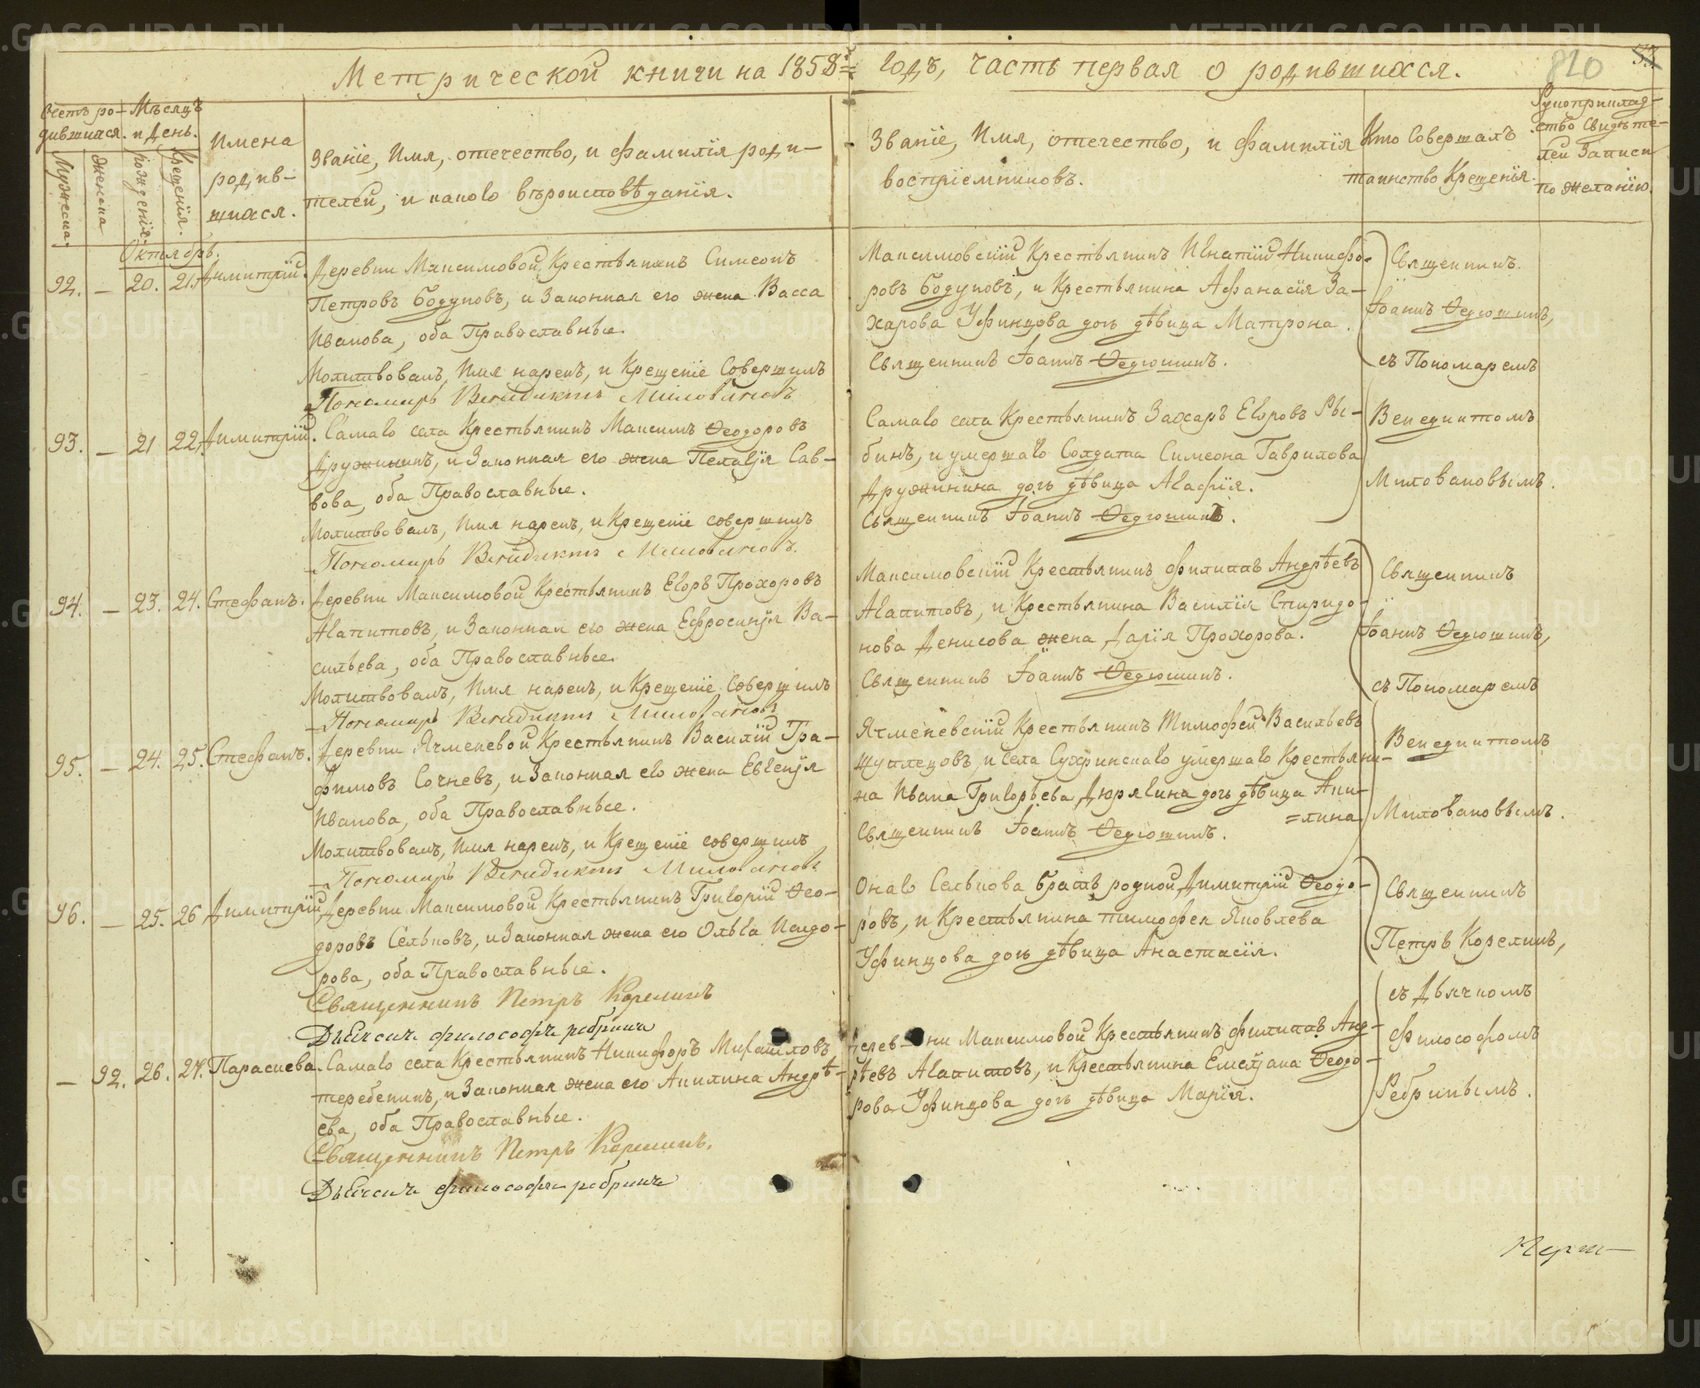 Метрической книги на 1858й годъ, часть первая о родившихся.
820
53
Счетъ ро-
дившихся.
Мѣсяцъ
и День.
Мужеска.
Женска
рожденія.
Крещенія.
Имена
родив-
шихся.
Званіе, Имя, отечество, и фамилія роди-
телей, и какого вѣроисповѣданія.
Званіе, Имя, отечество, и фамилія
воспріемниковъ.
Кто Совершалъ
таинство Крещенія.
Рукоприклад-
ство Свидѣте-
лей Записи
по желанію.
Октябрь.
92. — 20. 21. Димитрій. Деревни Максимовой Крестьянинъ Симеонъ
Петровъ Бодуновъ, и Законная его жена Васса
Иванова, оба Православные.
Молитвовалъ, Имя нарекъ, и Крещеніе Совершилъ
Максимовскій Крестьянинъ Игнатій Никифо-
ровъ Бодуновъ, и Крестьянина Афанасія За-
харова Уфинцова дочь дѣвица Матрона.
Священникъ Іоаннъ Ѳедюшинъ.
Пономарь Венидиктъ Миловановъ
Священникъ
Іоаннъ Ѳедюшинъ,
съ Пономаремъ
Венедиктомъ
Миловановымъ.
93. — 21 22. Димитрій. Самаго села Крестьянинъ Максимъ Ѳеодоровъ
Дружининъ, и Законная его жена Пелагія Сав-
вова, оба Православные.
Молитвовалъ, Имя нарекъ, и Крещеніе совершилъ
Самаго села Крестьянинъ Захаръ Егоровъ Ры-
бинъ, и умершаго Солдата Симеона Гаврилова
Дружинина дочь дѣвица Агафія.
Священникъ Іоаннъ Ѳедюшинъ.
Пономарь Венидиктъ Миловановъ.
94. — 23. 24. Стефанъ. Деревни Максимовой Крестьянинъ Егоръ Прохоровъ
Агапитовъ, и Законная его жена Ефросинія Ва-
сильева, оба Православные.
Молитвовалъ, Имя нарекъ, и Крещеніе Совершилъ
Максимовскій Крестьянинъ Филиппъ Андрѣевъ
Агапитовъ, и Крестьянина Василія Спиридо-
нова Денисова жена Дарія Прохорова.
Священникъ Іоаннъ Ѳедюшинъ.
Пономарь Венидиктъ Миловановъ
Священникъ
Іоаннъ Ѳедюшинъ,
съ Пономаремъ
Венедиктомъ
Миловановымъ.
95. — 24. 25. Стефанъ. Деревни Ячменевой Крестьянинъ Василій Тра-
фимовъ Сочневъ, и Законная его жена Евгенія
Иванова, оба Православные.
Молитвовалъ, Имя нарекъ, и Крещеніе совершилъ
Ячменевскій Крестьянинъ Тимофей Васильевъ
Щуплецовъ, и села Сухринскаго умершаго Крестьяни-
на Ивана Григорьева Дюрягина дочь дѣвица Аки-
=лина
Священникъ Іоаннъ Ѳедюшинъ.
Пономарь Венидиктъ Миловановъ
96. — 25. 26 Димитрій Деревни Максимовой Крестьянинъ Григорій Ѳео-
доровъ Сельковъ, и Законная жена его Ольга Исидо-
рова, оба Православные.
Священникъ Петръ Корелинъ
Дьячокъ философъ ребринъ
Онаго Селькова братъ родной Димитрій Ѳеодо-
ровъ, и Крестьянина тимофея Яковлева
Уфинцова дочь дѣвица Анастасія.
Священникъ
Петръ Корелинъ,
съ Дьячкомъ
Философомъ
Ребринымъ.
— 92. 26. 27. Параскева. Самаго села Крестьянинъ Никифоръ Михайловъ
теребенинъ, и Законная жена его Акилина Андрѣ-
ева, оба Православные.
Священникъ Петръ Корелинъ.
Дьячокъ философъ ребринъ
Дерев-ни Максимовой Крестьянинъ Филиппъ Анд-
рѣевъ Агапитовъ, и Крестьянина Емеліана Ѳеодо-
рова Уфинцова дочь дѣвица Марія.
METRIKI.GASO-URAL.RU